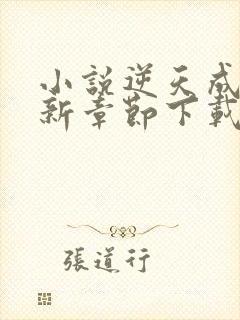 小說逆天成
新章節下載
張道行